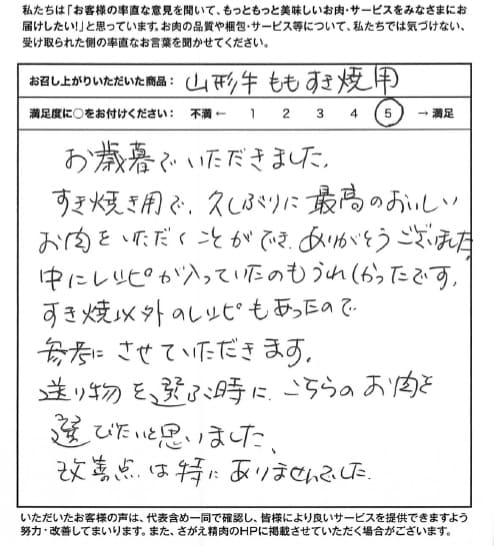 私たちは「お客様の率直な意見を聞いて、もっともっと美味しいお肉・サービスをみなさまにお
届けしたい!」と思っています。お肉の品質や梱包・サービス等について、私たちでは気づけない、
受け取られた側の率直なお言葉を聞かせてください。
お召し上がりいただいた商品: 山形牛 ももすき焼用
満足度に○をお付けください: 不満 ← 1 2 3 4 5 → 満足
お歳暮でいただきました。
すき焼き用で、久しぶりに最高のおいしい
お肉をいただくことができ、ありがとうございました。
中にレシピが入っていたのもうれしかったです。
すき焼以外のレシピもあったので
参考にさせていただきます。
送り物を選ぶ時に、こちらのお肉を
選びたいと思いました。
改善点は特にありませんでした。
いただいたお客様の声は、代表含め一同で確認し、皆様により良いサービスを提供できますよう
努力・改善してまいります。また、さがえ精肉のHPに掲載させていただく場合がございます。